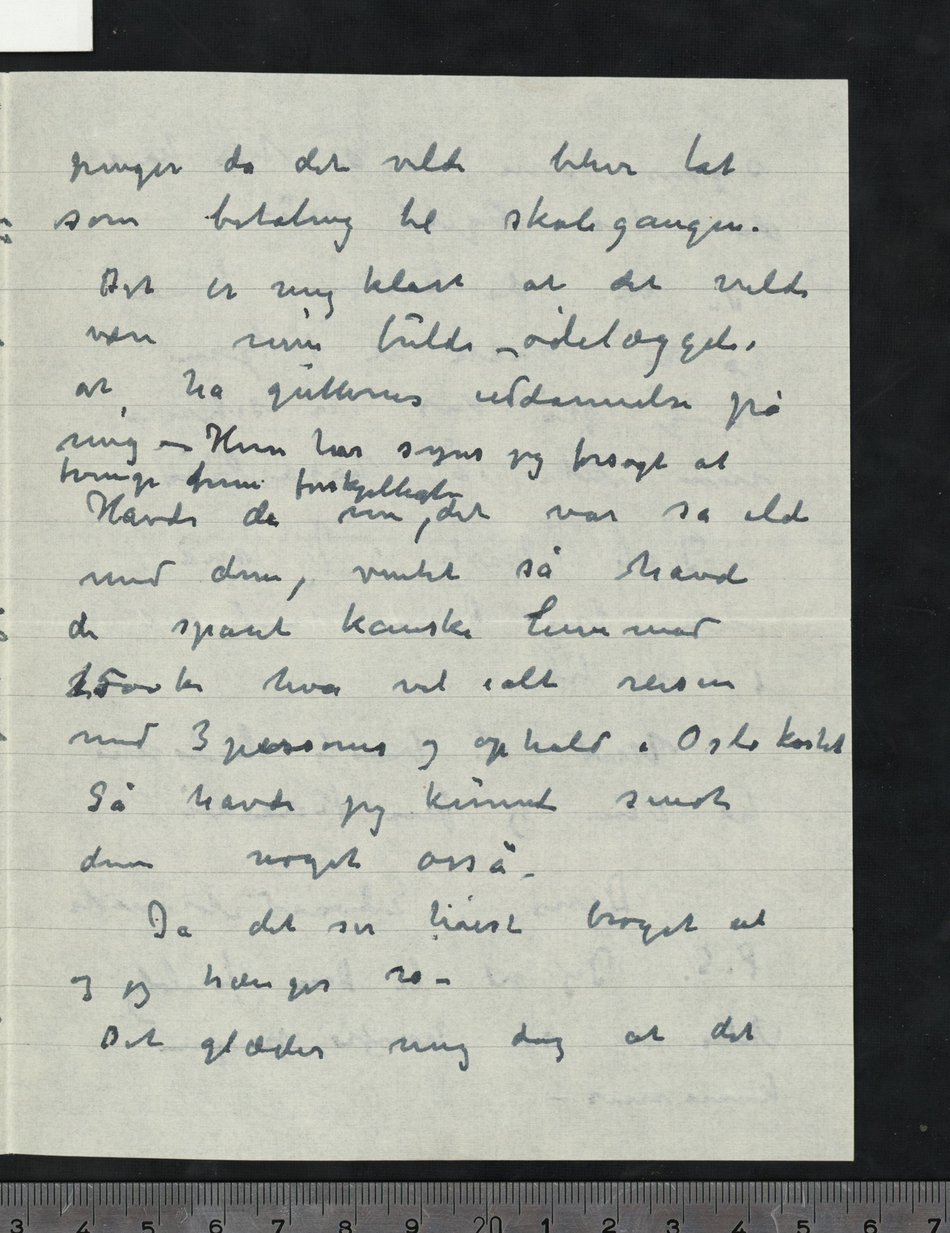 penger da det vilde blive tat
som betaling til skolegangen.
Det er mig klart at det vilde
være min fulde ødelæggelse
at ha gutternes uddannelse på
mig – Hun har synes jeg forsøgt at
tvinge frem forskjelligt
Havde de nu, det var så ilde
med dem, ventet så havde
de spart kanske henimod
1500 kr hva vel ialt reisen
med 3 personer og ophold i Oslo kostet
Så havde jeg kunnet sendt
dem noget også –
Ja det ser høist broget ut
og jeg trænger ro –
Det glæder mig dog at det
3 4 5 6 7 8 9 20 1 2 3 4 5 6 7